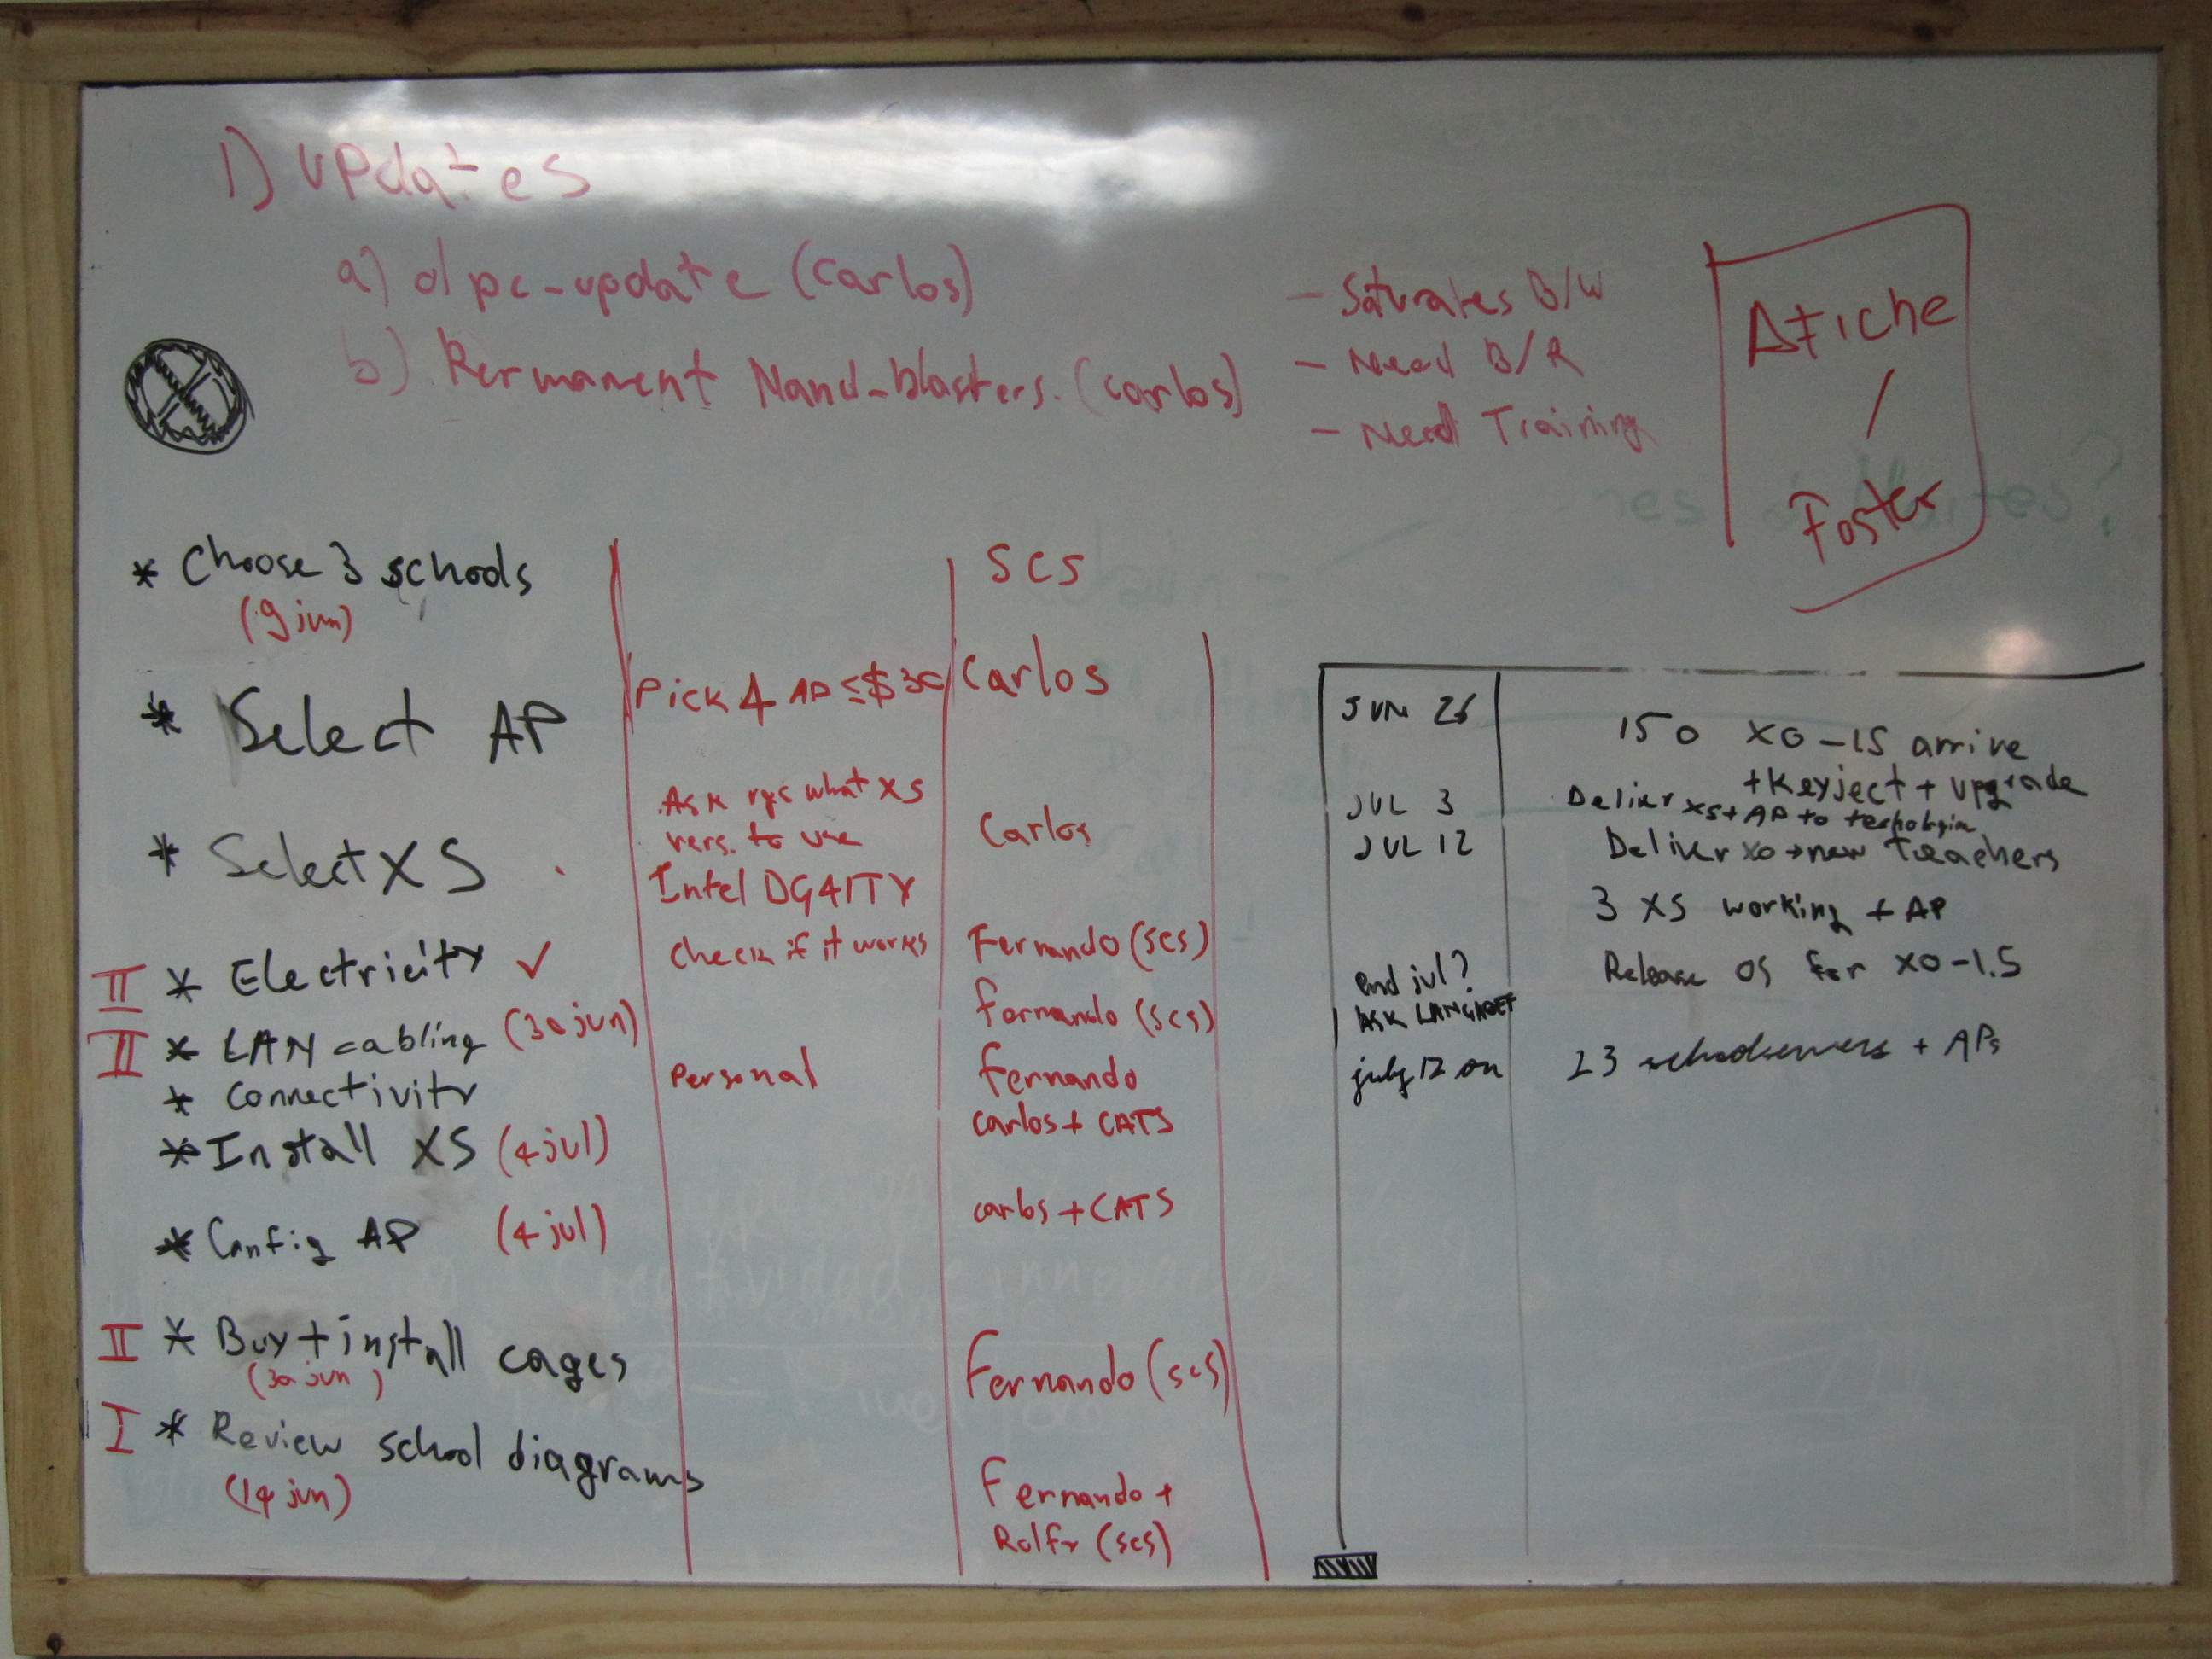 1) Updates
a) olpc-update (Carlos)
b) Permanent Nand-blasters. (carlos)
- Saturates B/W
- Need B/R
- Need Training
Afiche
/
Foster
* Choose 3 schools
(9 jun)
* Select AP
* Select XS
II * Electricity ✓
II * LAN cabling (30 jun)
* Connectivity
* Install XS (4 jul)
* Config AP (4 jul)
II * Buy + install cages
(30 jun)
I * Review school diagrams
(14 jun)
Pick 4 AP ≤ $30
Ask rgs what XS
vers. to use
Intel DG41TY
Check if it works
Personal
SCS
Carlos
Carlos
Fernando (scs)
Fernando (scs)
Fernando
carlos + CATS
carlos + CATS
Fernando (scs)
Fernando +
Rolfr (scs)
JUN 26 150 XO-1.5 arrive
+ Keyject + upgrade
JUL 3 Deliver XS + AP to
JUL 12 Deliver XO → new Teachers
3 XS working + AP
end jul? Release OS for XO-1.5
ASK
july 12 on 23 schoolservers + APs